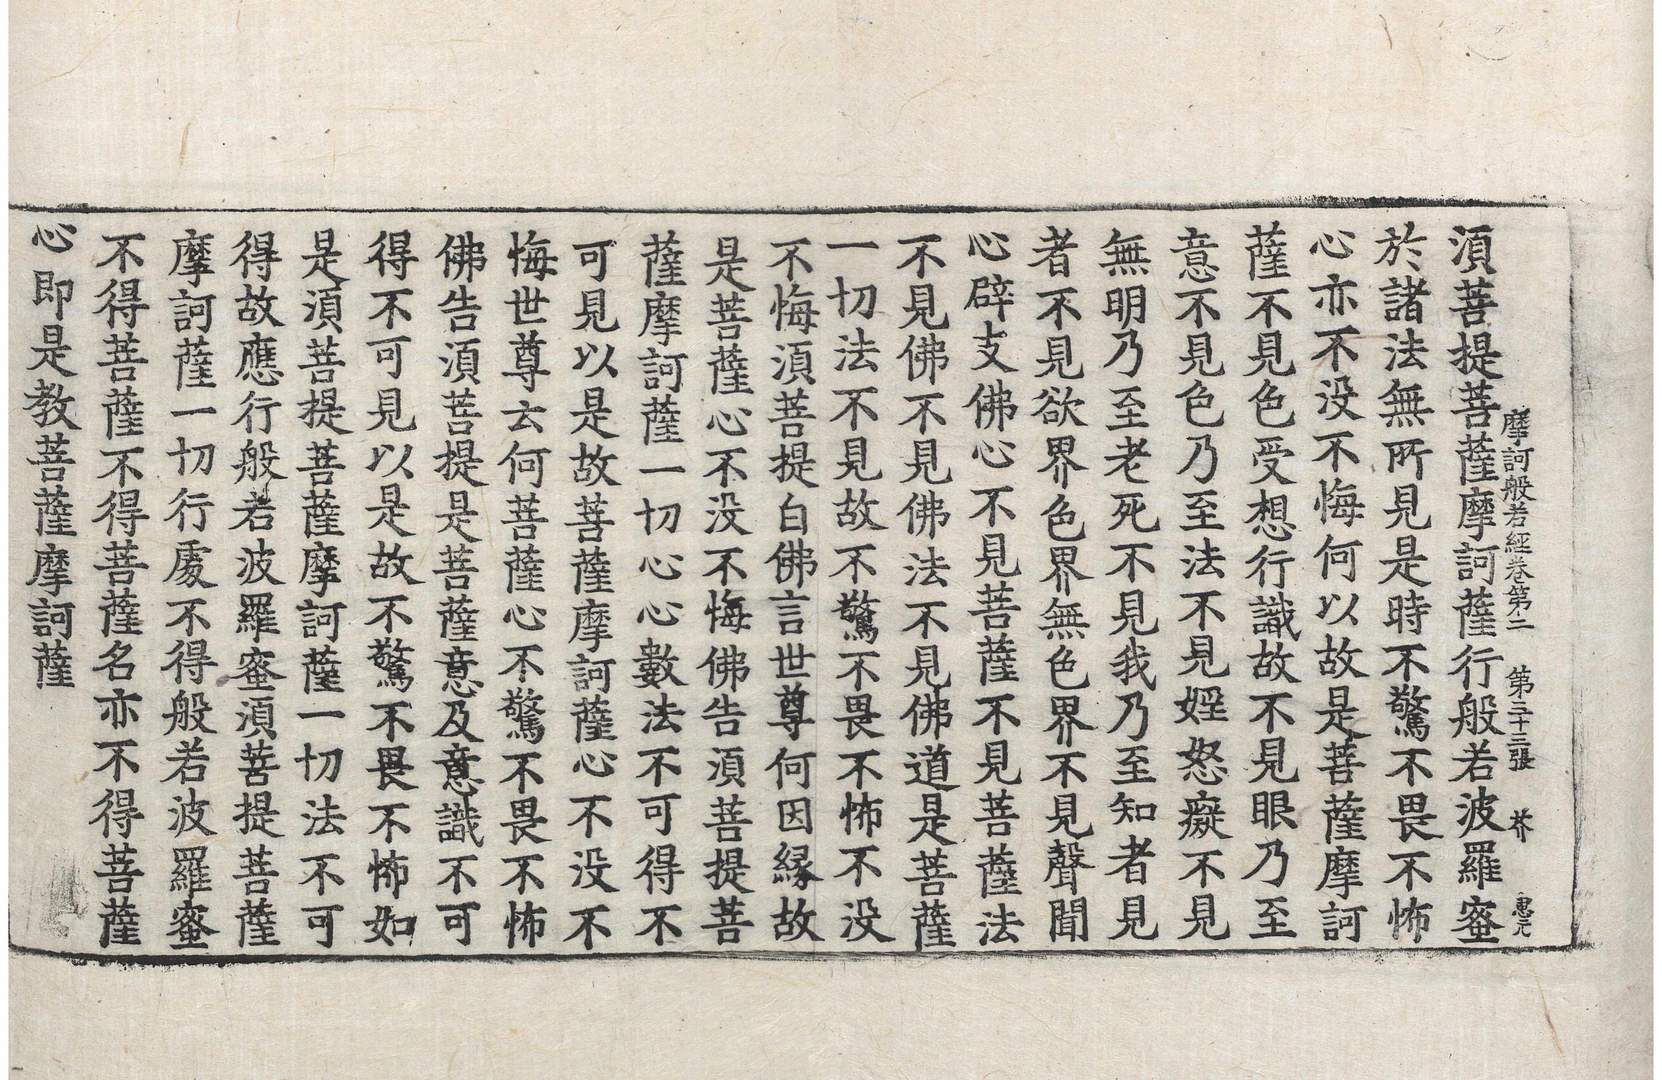 摩訶般若經卷第二 第三十三張 芥 惠元
湏菩提菩薩摩訶薩行般若波羅蜜
於諸法無所見是時不驚不畏不怖
心亦不没不悔何以故是菩薩摩訶
薩不見色受想行識故不見眼乃至
意不見色乃至法不見婬怒癡不見
無明乃至老死不見我乃至知者見
者不見欲界色界無色界不見聲聞
心辟支佛心不見菩薩不見菩薩法
不見佛不見佛法不見佛道是菩薩
一切法不見故不驚不畏不怖不没
不悔湏菩提白佛言世尊何因縁故
是菩薩心不没不悔佛告湏菩提菩
薩摩訶薩一切心心數法不可得不
可見以是故菩薩摩訶薩心不没不
悔世尊云何菩薩心不驚不畏不怖
佛告湏菩提是菩薩意及意識不可
得不可見以是故不驚不畏不怖如
是湏菩提菩薩摩訶薩一切法不可
得故應行般若波羅蜜湏菩提菩薩
摩訶薩一切行處不得般若波羅蜜
不得菩薩不得菩薩名亦不得菩薩
心即是教菩薩摩訶薩